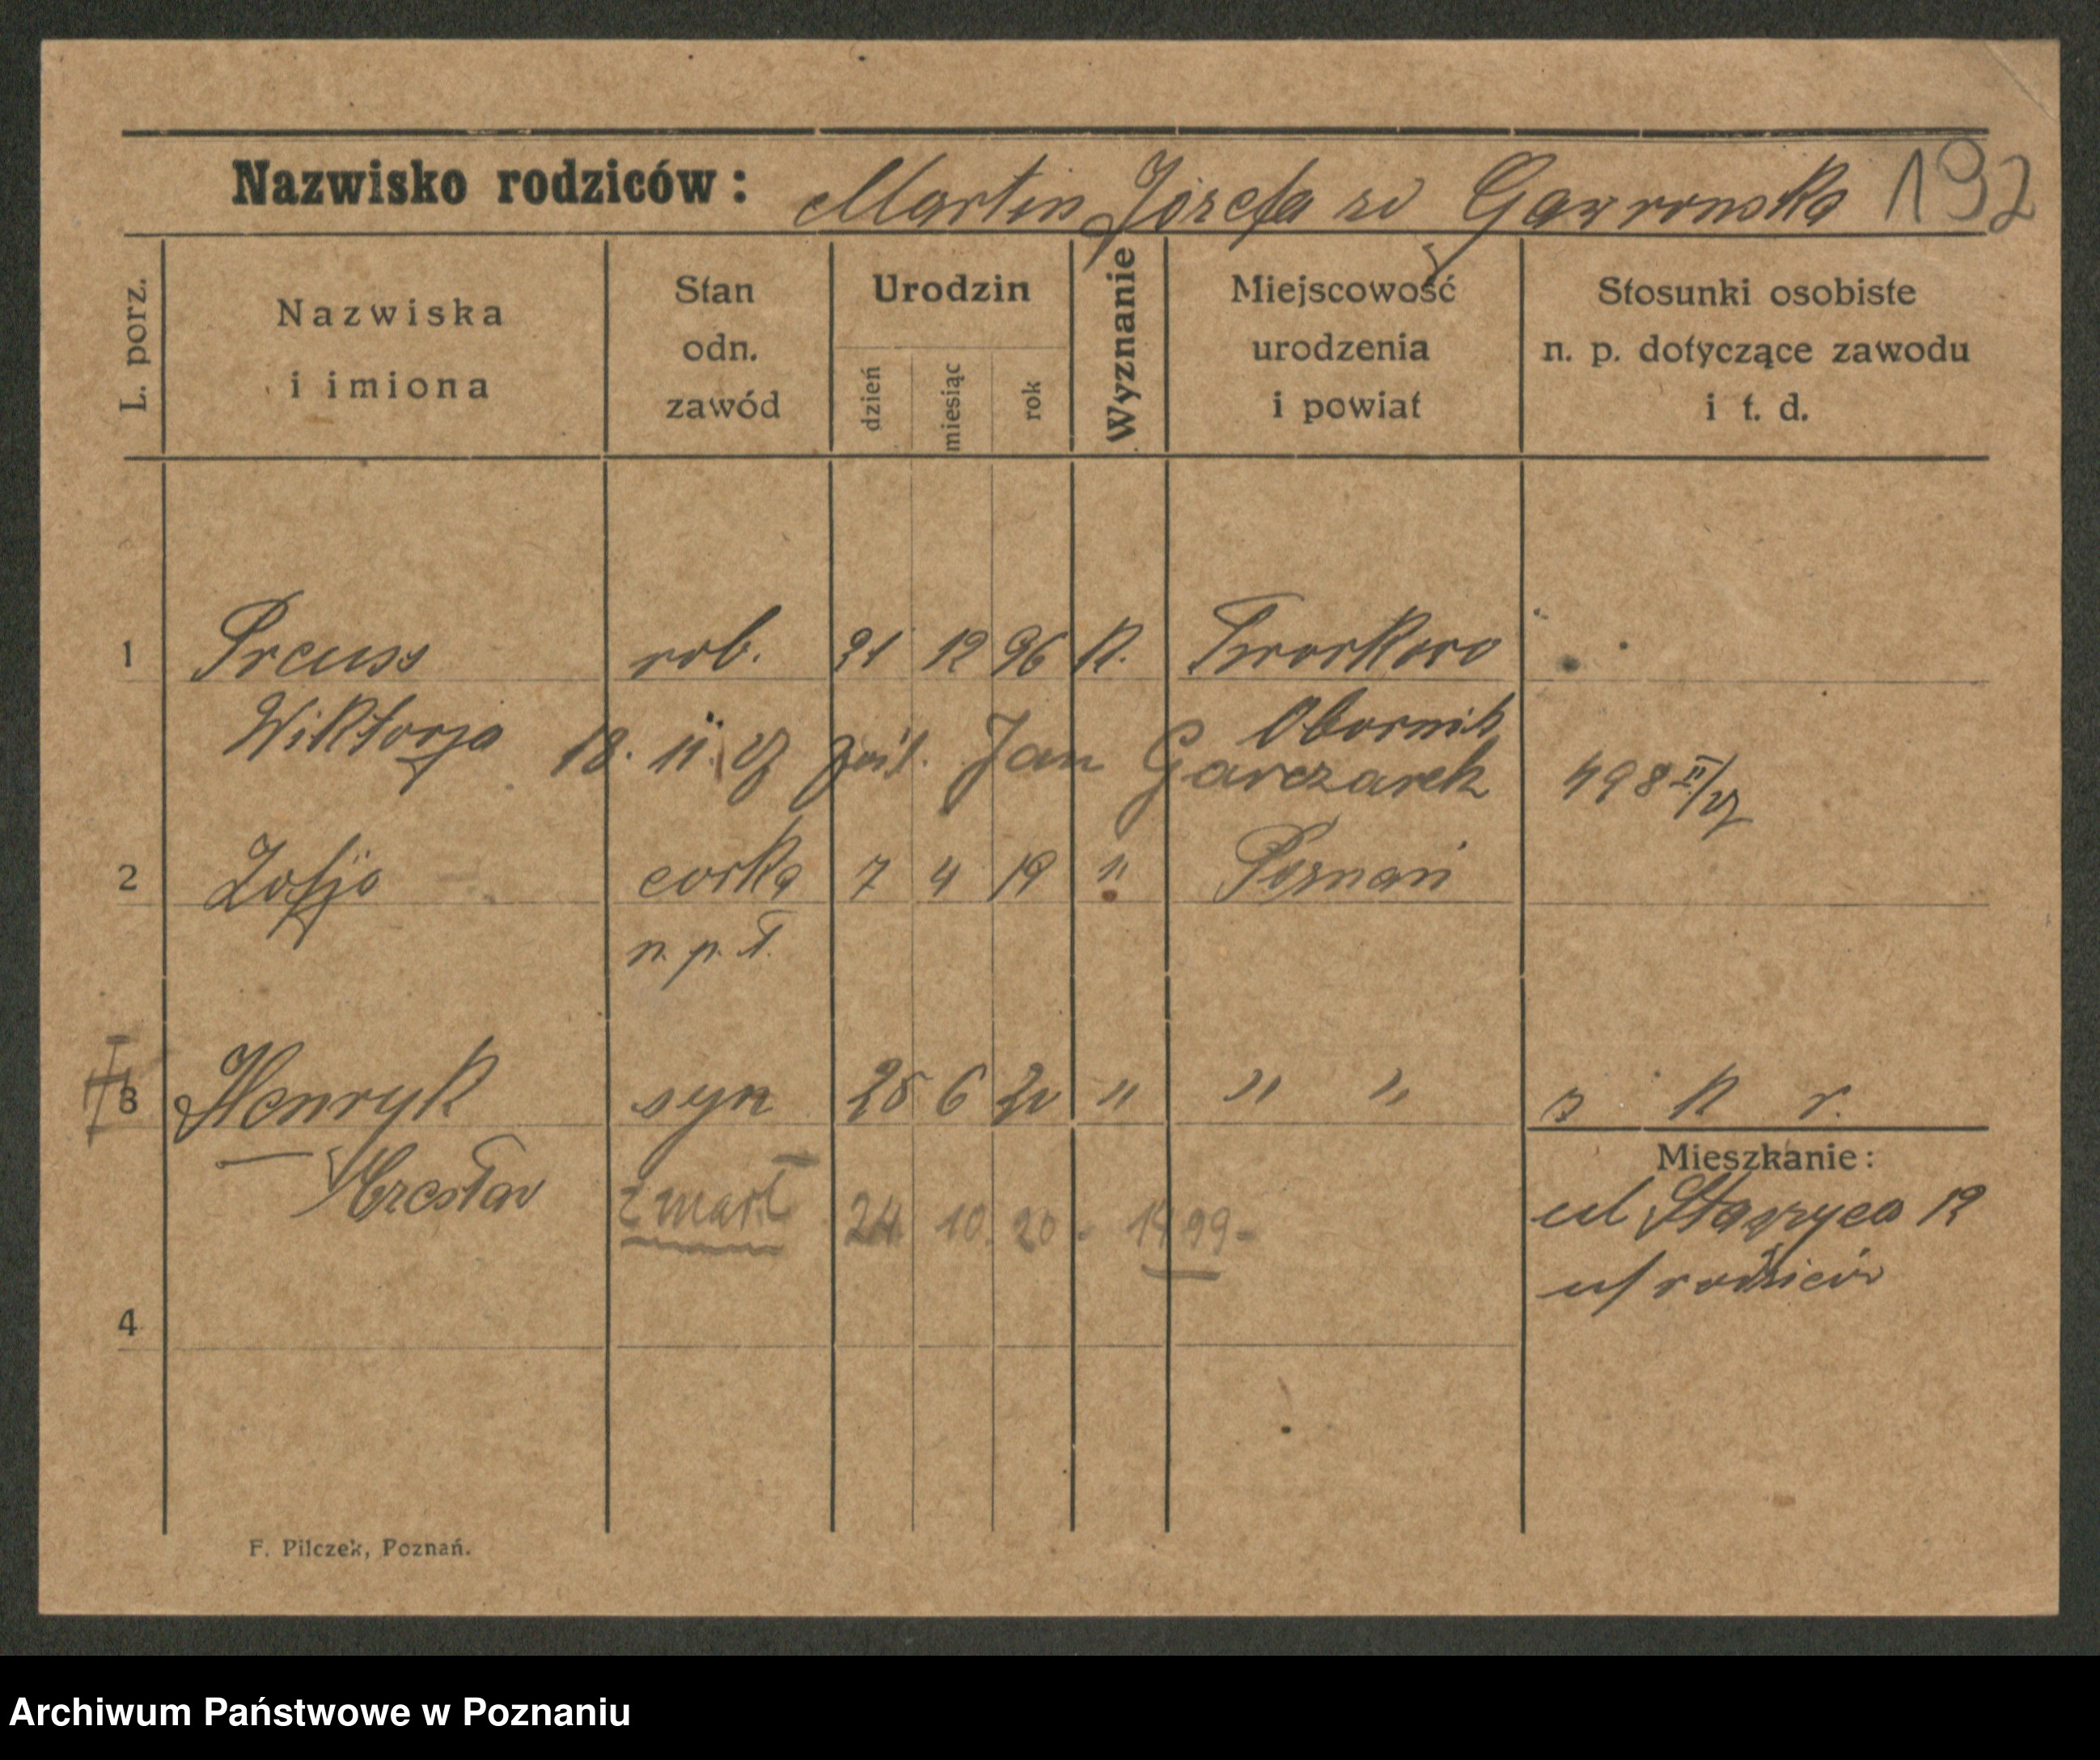 Nazwisko rodziców: Martin Józefa zd Gawronska 192
L. porz.
Nazwiska
i imiona
Stan
odn.
zawód
Urodzin
dzień
miesiąc
rok
Wyznanie
Miejscowość
urodzenia
i powiat
Stosunki osobiste
n. p. dotyczące zawodu
i t. d.
1 Preuss rob. 21 12 96 K. Tworkowo
Wiktorja Obornik
18. 11. 27 zaśl. Jan Garczarek 498 II/27
2 Zofja corka 7 4 19 " Poznań
n. p. ł.
3 Henryk syn 25 6 20 " " "
Mieszkanie:
Czesław
zmarł 24 10. 20 - 1499 -
ul Stawna 12
u/rodziców
4
F. Pilczek, Poznań.
Archiwum Państwowe w Poznaniu